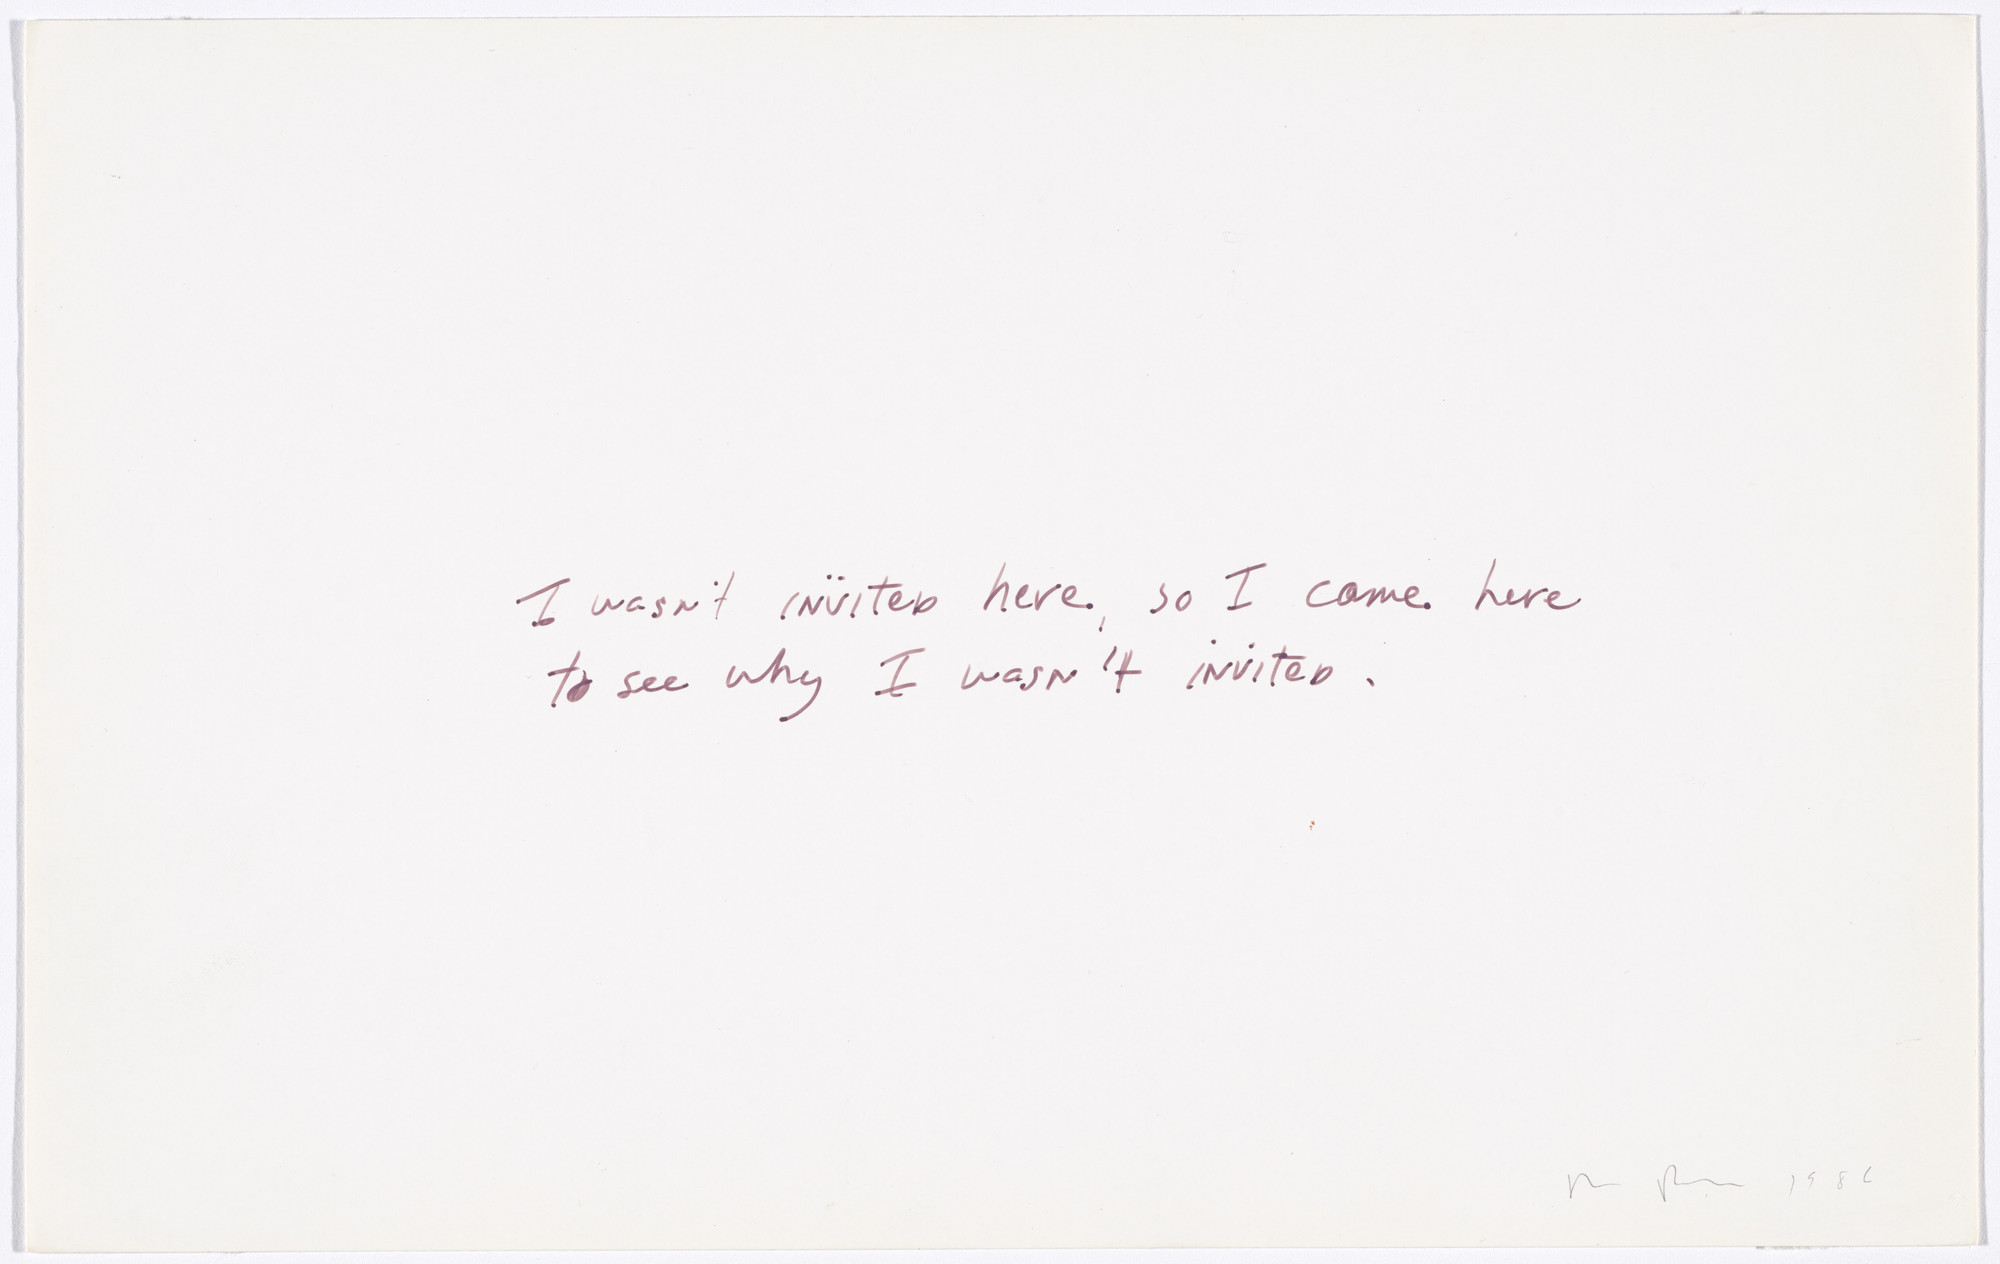 I wasn't invited here, so I came here
to see why I wasn't invited.
1986